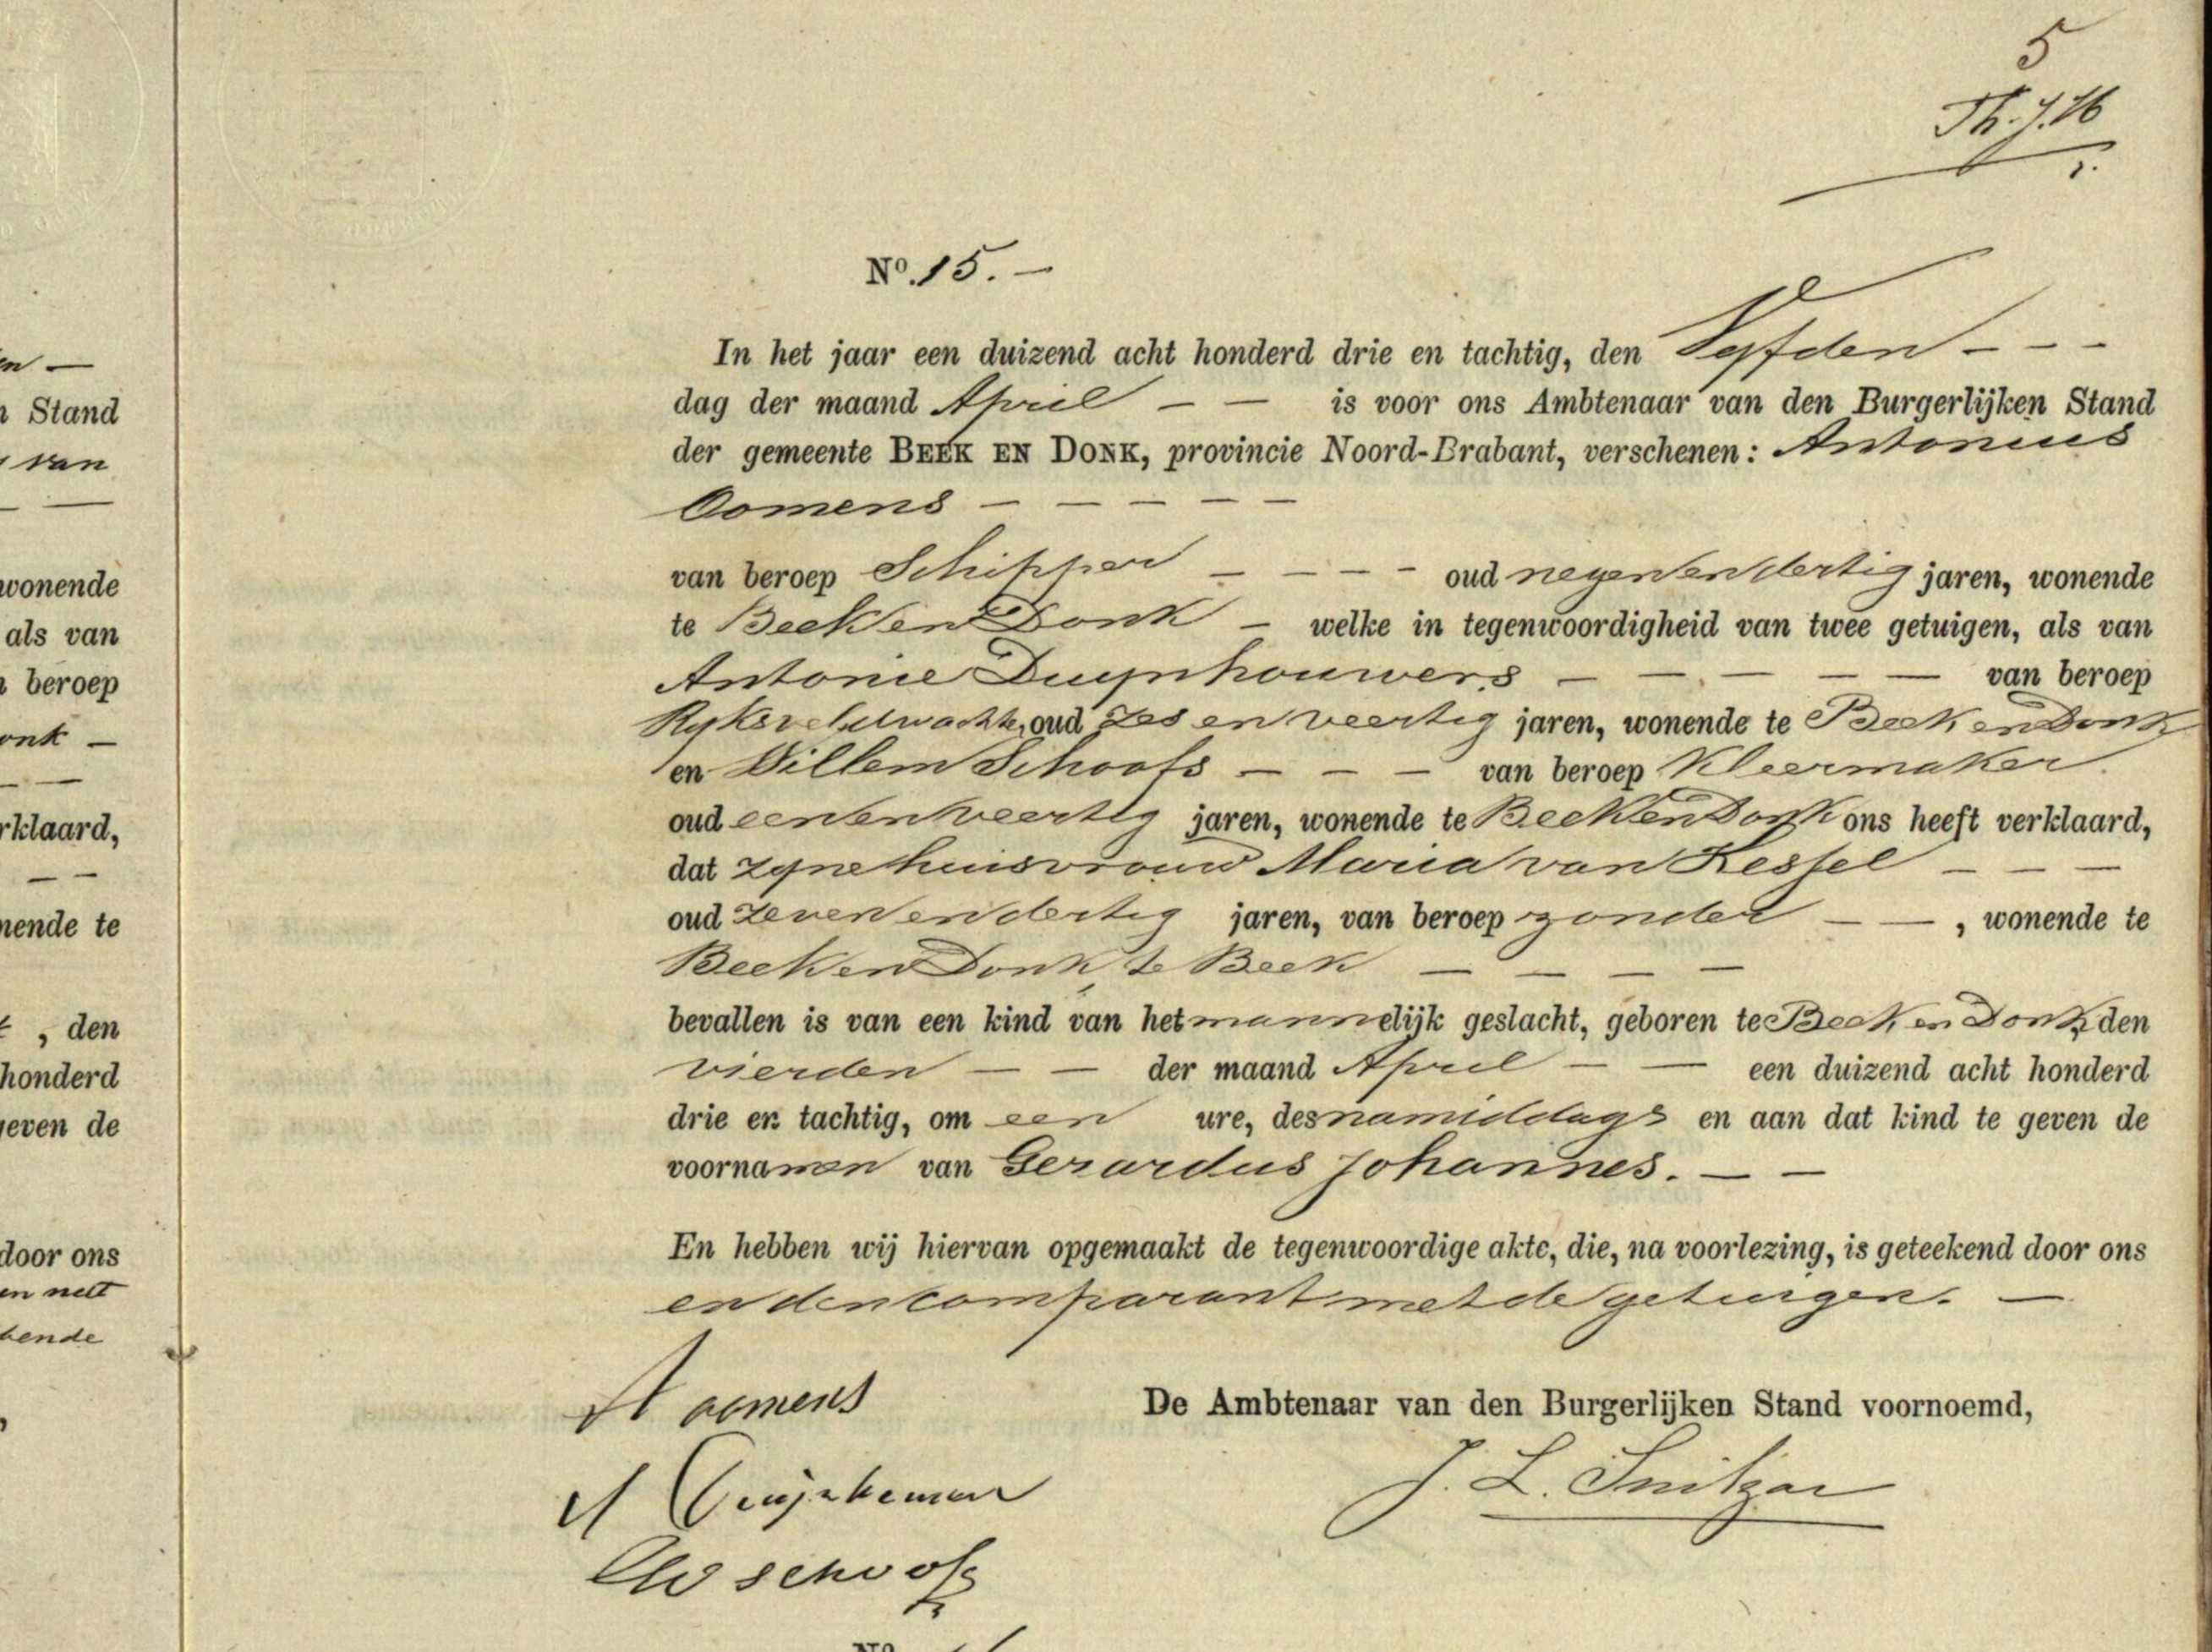 5
Th. J. 16
No. 15. –
In het jaar een duizend acht honderd drie en tachtig, den Vyfden - - -
dag der maand April – – is voor ons Ambtenaar van den Burgerlijken Stand
der gemeente BEEK EN DONK, provincie Noord-Brabant, verschenen: Antonius
Oomens – – – – –
van beroep Schipper – – – - oud negen en dertig jaren, wonende
te Beek en Donk – welke in tegenwoordigheid van twee getuigen, als van
Antonie Duynhouwers – – – – – van beroep
Ryksveldwachter, oud zes en veertig jaren, wonende te Beek en Donk
en Willem Schoofs – – – van beroep Kleermaker
oud een en veertig jaren, wonende te Beek en Donk ons heeft verklaard,
dat zyne huisvrouw Maria van Kessel – – –
oud zeven en dertig jaren, van beroep zonder – – , wonende te
Beek en Donk, te Beek – – – –
bevallen is van een kind van het mannelijk geslacht, geboren te Beek en Donk, den
vierden – – der maand April – – een duizend acht honderd
drie en tachtig, om een ure, des namiddags en aan dat kind te geven de
voornamen van Gerardus Johannes. – –
En hebben wij hiervan opgemaakt de tegenwoordige akte, die, na voorlezing, is geteekend door ons
en den comparant met de getuigen. –
A oomens
De Ambtenaar van den Burgerlijken Stand voornoemd,
J. L. Snitzar
W schoofs
en –
n Stand
van
wonende
als van
n beroep
onk –
rklaard,
nende te
, den
honderd
geven de
door ons
en met
kende
No